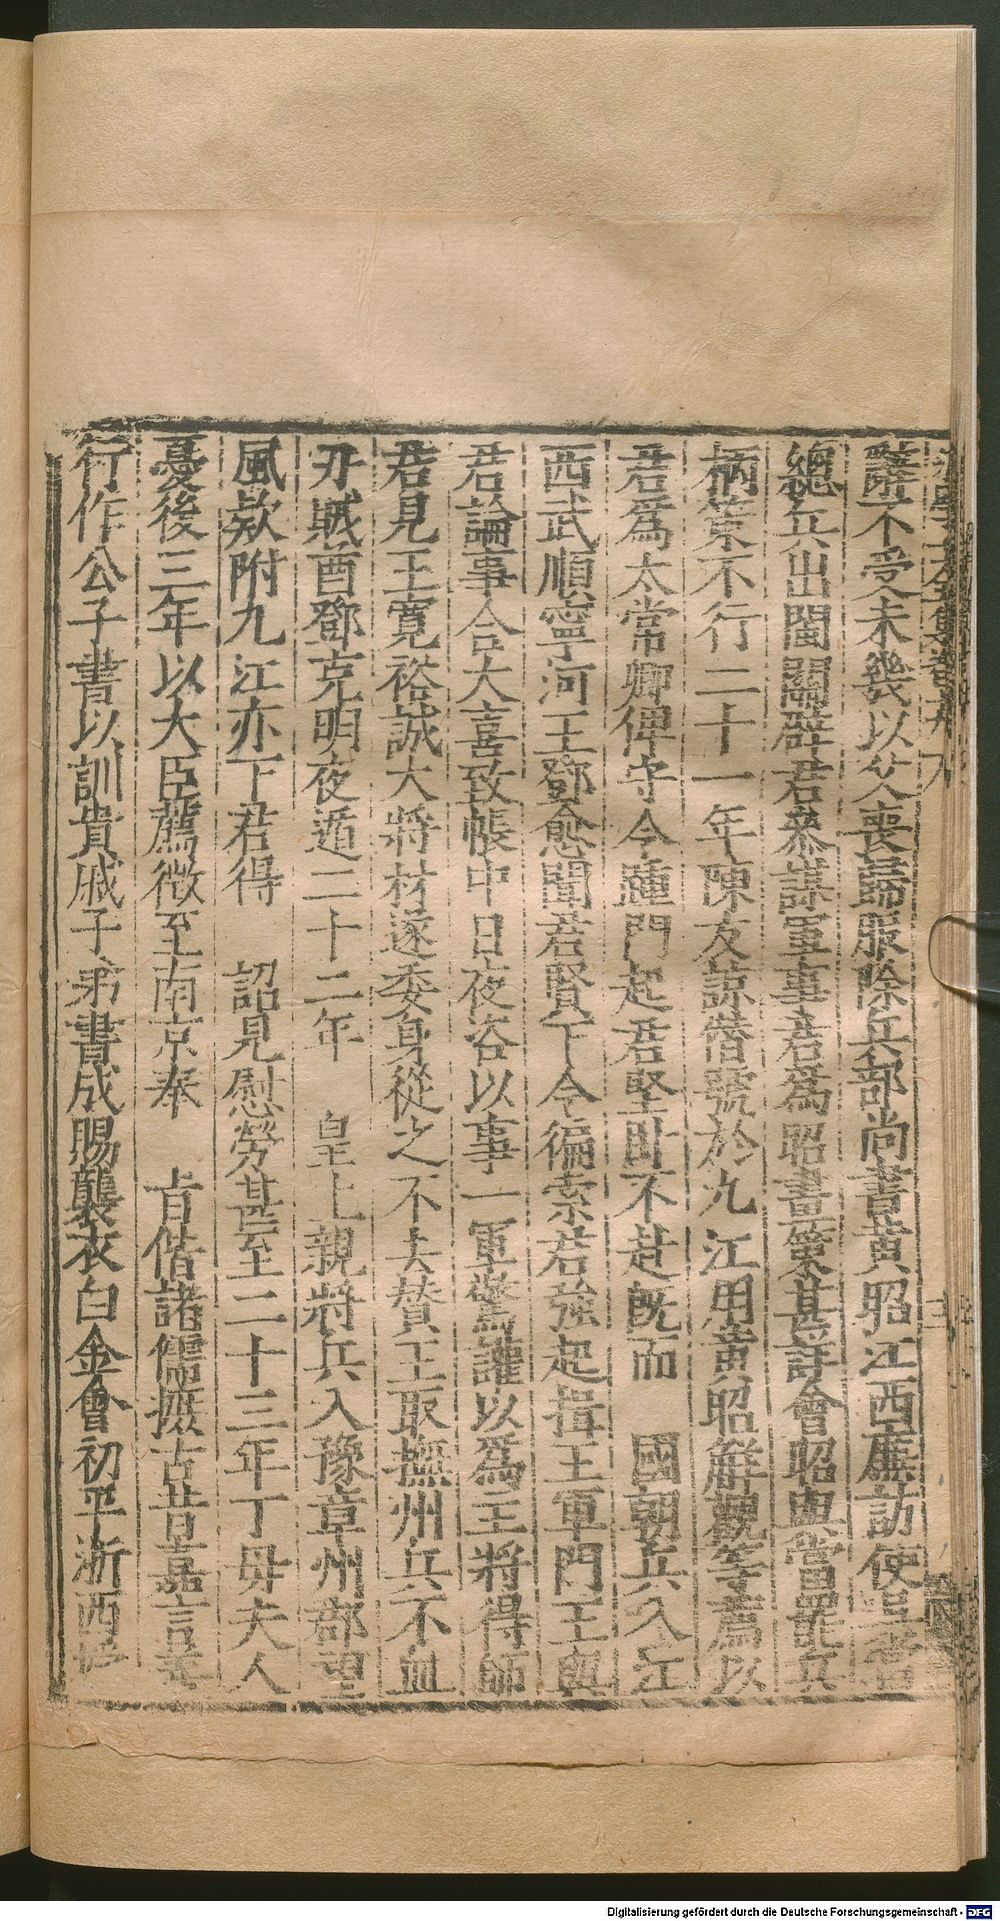 辭不受未幾以父喪歸服除兵部尚書黄昭江西廉訪使吳當
總兵出閩關辟君叅謀軍事君爲昭畫策甚詳會昭與當罷兵
柄策不行二十一年陳友諒僣號於九江用黄昭解觀等薦以
君爲太常卿俾守令踵門起君堅卧不赴既而　國朝兵入江
西武順寧河王鄧愈聞君賢下令徧索君強起揖王軍門王與
君論事合大喜致帳中日夜咨以事一軍驚讙以爲王將得師
君見王寛裕誠大將材遂委身從之不去賛王取撫州兵不血
刃賊酋鄧克明夜遁二十二年　皇上親將兵入豫章州郡望
風欵附九江亦下君得　詔見慰勞甚至二十三年丁毋夫人
憂後三年以大臣薦徴至南京奉　㫖偕諸儒摭古昔嘉言善
行作公子書以訓貴戚子弟書成賜襲衣白金會初平浙西